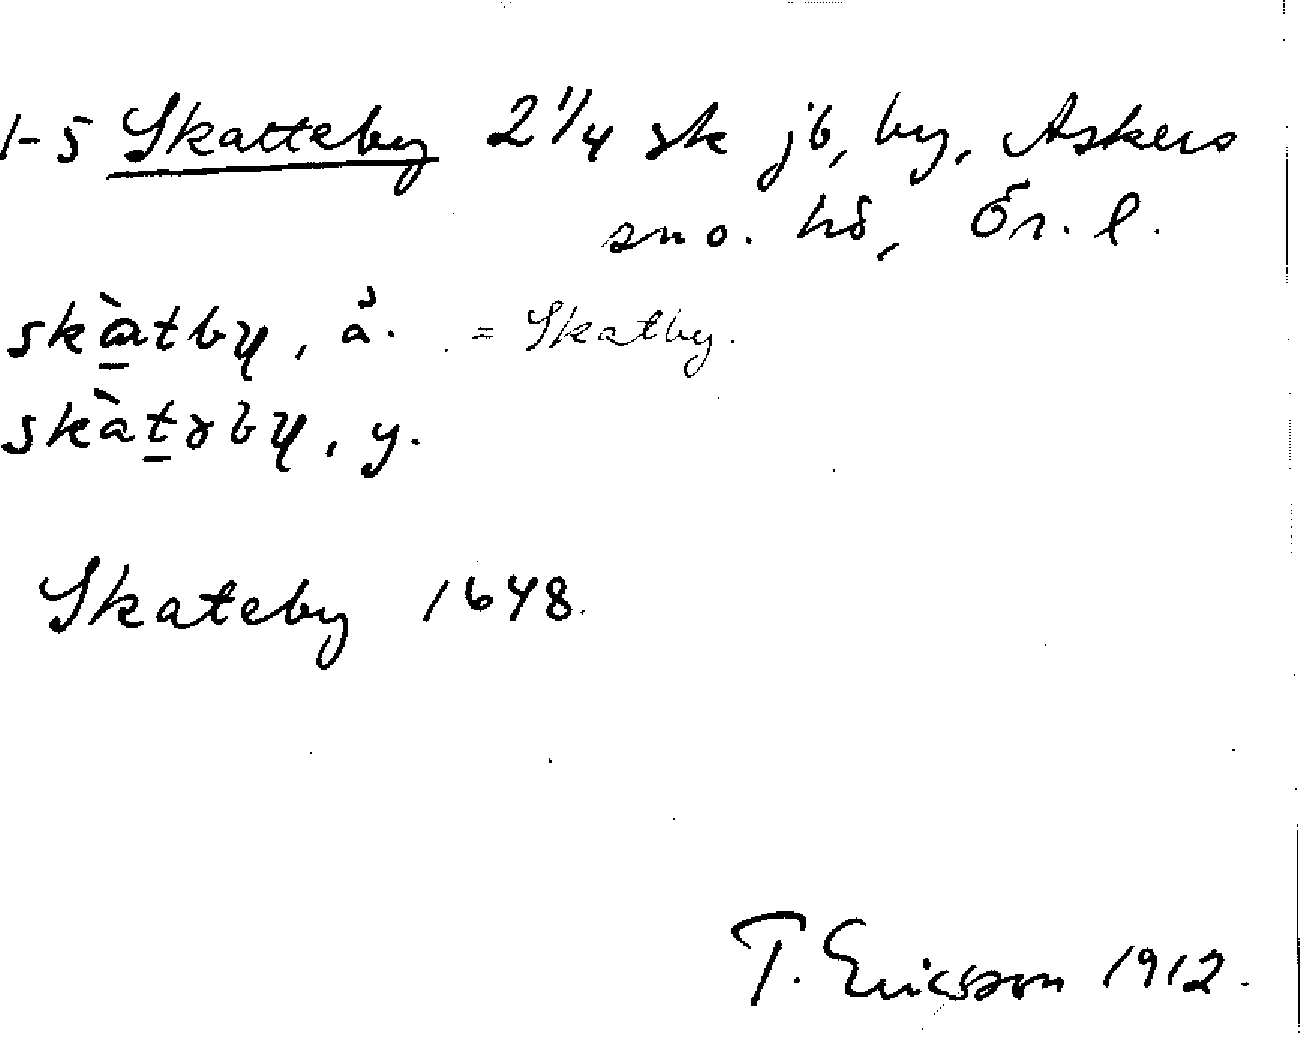 1-5 Skatteby 2 1/4 sk jb, by, Askers
sn o. hd, Ör. l.
skàtby, ä. = Skatby.
skàtəby, y.
Skateby 1648.
T. Ericsson 1912.